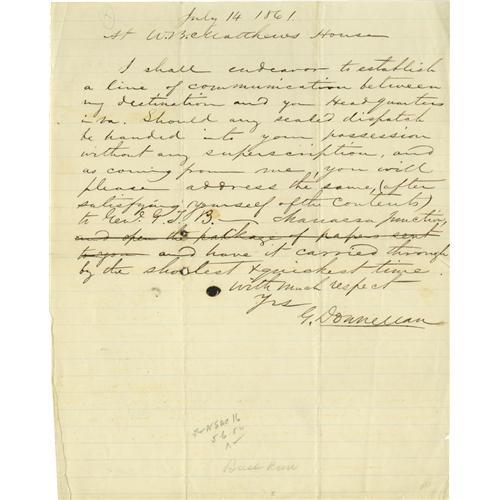 July 14 1861.
At W.B. Matthews House
I shall endeavor to establish
a line of communication between
my destination and you Headquarters
in Va. Should any sealed dispatch
be handed into your possession
without any superscription, and
as coming from me, you will
please address the same, (after
satisfying yourself of the contents)
to Genl. G. T. B. Manassa Junction,
and open the package of papers sent
to you and have it carried through
by the shortest & quickest time.
With much respect
Yrs
G. Donnellan
5.6.50
Bull Run